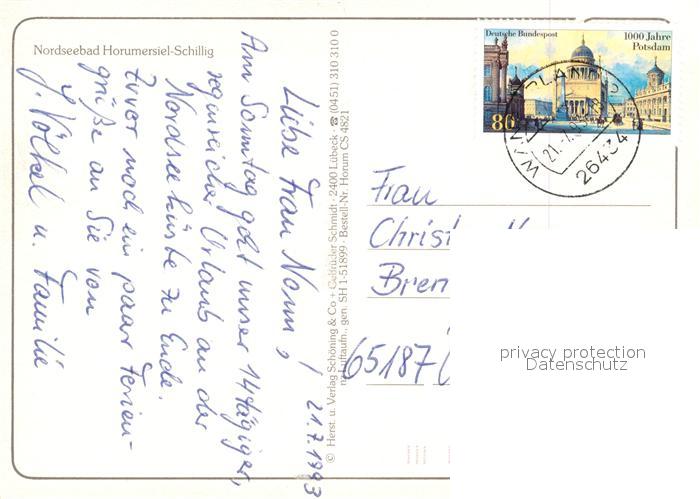 Nordseebad Horumersiel-Schillig
21.7.1993
Liebe Frau Nonn,
Am Sonntag geht unser 14tägiger,
regenreicher Urlaub an der
Nordseeküste zu Ende.
Zuvor noch ein paar Ferien-
grüße an Sie von
J. Völkel u. Familie
© Herst. u. Verlag Schöning & Co + Gebrüder Schmidt · 2400 Lübeck · ☎ (0451) 310 310 0
Luftaufn., gen. SH 1-51899 · Bestell-Nr. Horum CS 4521
Deutsche Bundespost
1000 Jahre
Potsdam
80
21.-7.93
26434
Frau
Christ
Bren
65187
privacy protection
Datenschutz